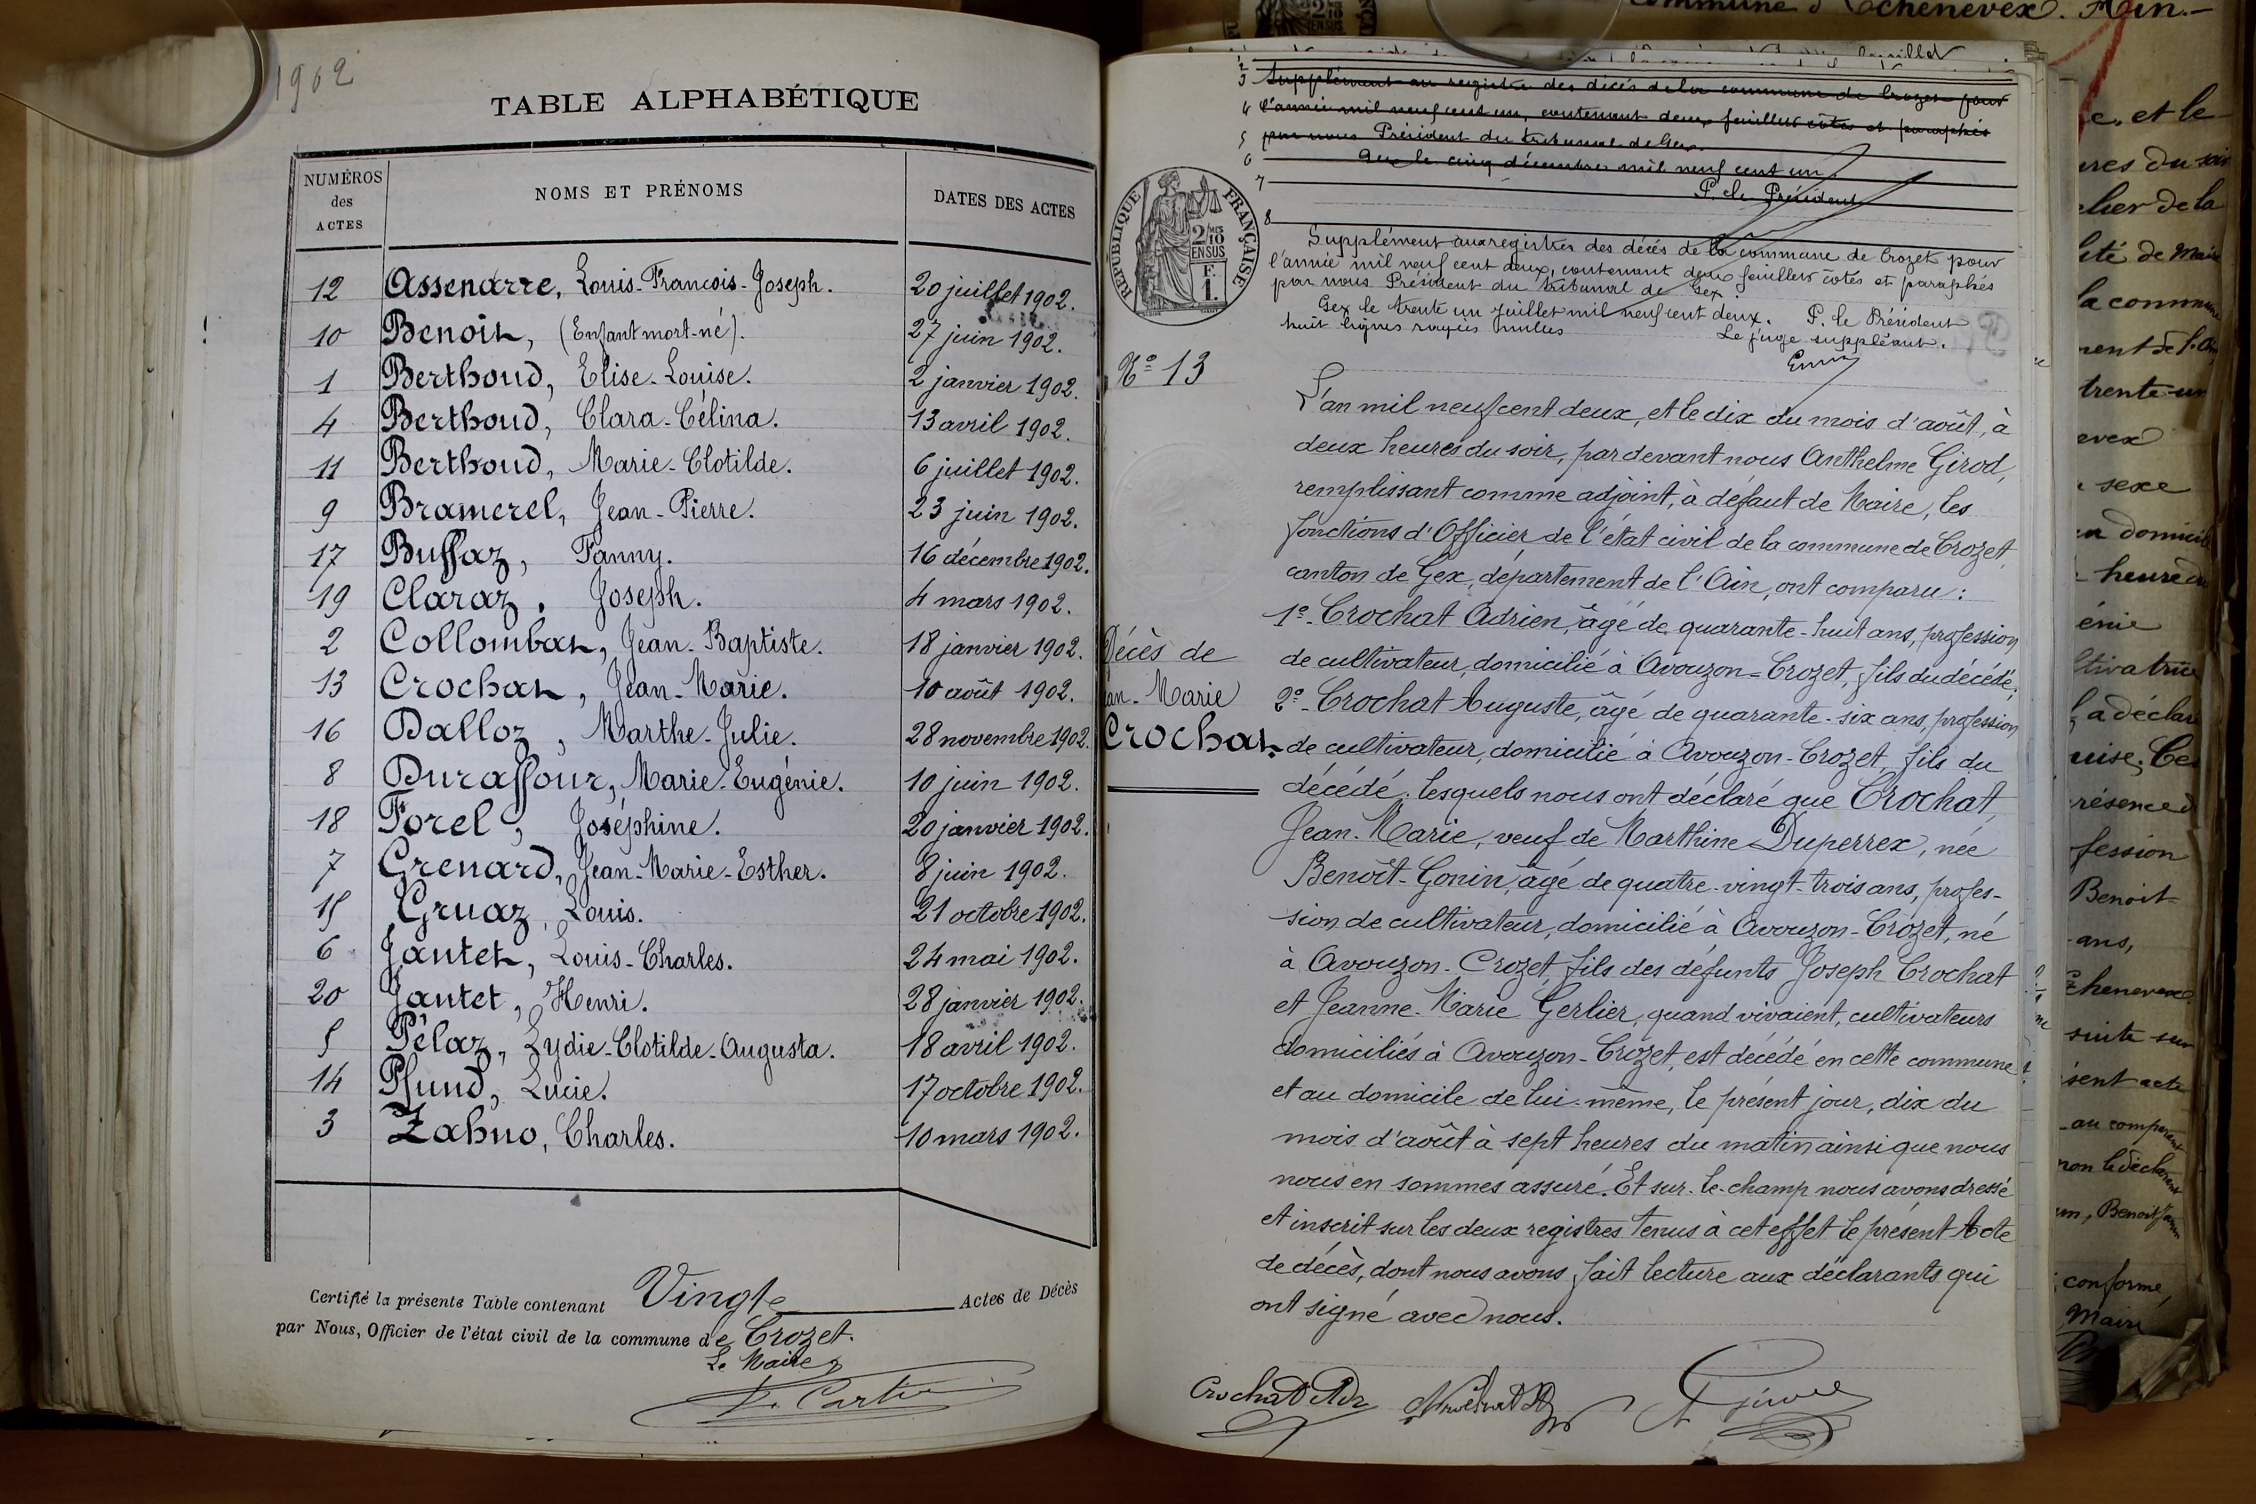 1902
TABLE ALPHABÉTIQUE
NUMÉROS des ACTES
NOMS ET PRÉNOMS
DATES DES ACTES
12 Assenarre, Louis-François-Joseph. 20 juillet 1902.
10 Benoit, (Enfant mort-né). 27 juin 1902.
1 Berthoud, Elise-Louise. 2 janvier 1902.
4 Berthoud, Clara-Célina. 13 avril 1902.
11 Berthoud, Marie-Clotilde. 6 juillet 1902.
9 Bramerel, Jean-Pierre. 23 juin 1902.
17 Buffaz, Fanny. 16 décembre 1902.
19 Claraz, Joseph. 4 mars 1902.
2 Collombat, Jean-Baptiste. 18 janvier 1902.
13 Crochat, Jean-Marie. 10 août 1902.
16 Dalloz, Marthe-Julie. 28 novembre 1902.
8 Duraffour, Marie-Eugénie. 10 juin 1902.
18 Forel, Joséphine. 20 janvier 1902.
7 Grenard, Jean-Marie-Esther. 8 juin 1902.
15 Gruaz, Louis. 21 octobre 1902.
6 Jantet, Louis-Charles. 24 mai 1902.
20 Jantet, Henri. 28 janvier 1902.
5 Pélaz, Lydie-Clotilde-Augusta. 18 avril 1902.
14 Pfund, Lucie. 17 octobre 1902.
3 Zahno, Charles. 10 mars 1902.
Certifié la présente Table contenant Vingt Actes de Décès
par Nous, Officier de l'état civil de la commune de Crozet.
Le Maire
3 Supplément au registre des décès de la commune de Crozet pour
4 l'année mil neuf cent un, contenant deux feuillets côtés et paraphés
5 par nous Président du tribunal de Gex.
6 Gex le cinq décembre mil neuf cent un
7 P. le Président
8
RÉPUBLIQUE FRANÇAISE
2/10 EN SUS
F. C.
1.
Supplément aux registres des décès de la commune de Crozet pour
l'année mil neuf cent deux, contenant deux feuillets côtés et paraphés
par nous Président du tribunal de Gex.
Gex le trente un juillet mil neuf cent deux. P. le Président
huit lignes rayées nulles Le juge suppléant.
N° 13
L'an mil neuf cent deux, et le dix du mois d'août, à
deux heures du soir, par devant nous Anthelme Girod,
remplissant comme adjoint, à défaut de Maire, les
fonctions d'Officier de l'état civil de la commune de Crozet,
canton de Gex, département de l'Ain, ont comparu :
1°- Crochat Adrien, âgé de quarante-huit ans, profession
Décès de
de cultivateur, domicilié à Avouzon-Crozet, fils du décédé;
an-Marie
2°- Crochat Auguste, âgé de quarante-six ans, profession
Crochat.
de cultivateur, domicilié à Avouzon-Crozet, fils du
décédé; lesquels nous ont déclaré que Crochat,
Jean-Marie, veuf de Marthine Duperrex, née
Benoît-Gonin, âgé de quatre-vingt-trois ans, profes-
sion de cultivateur, domicilié à Avouzon-Crozet, né
à Avouzon-Crozet, fils des défunts Joseph Crochat
et Jeanne-Marie Gerlier, quand vivaient, cultivateurs
domiciliés à Avouzon-Crozet, est décédé en cette commune
et au domicile de lui-même, le présent jour, dix du
mois d'août à sept heures du matin ainsi que nous
nous en sommes assuré. Et sur-le-champ nous avons dressé
et inscrit sur les deux registres tenus à cet effet le présent Acte
de décès, dont nous avons fait lecture aux déclarants qui
ont signé avec nous.
Crochat Adr
commune d'Echenevex. Ain.-
e, et le
ures du soir
elier de la
la commune
trente-un
evex
sexe
domicile
heure du
énie
ltivatrice
a déclaré
résence d
fession
Benoit
ans,
Echenevex
suite sur
sent acte
au comparant
non le déclarant
conforme,
Maire